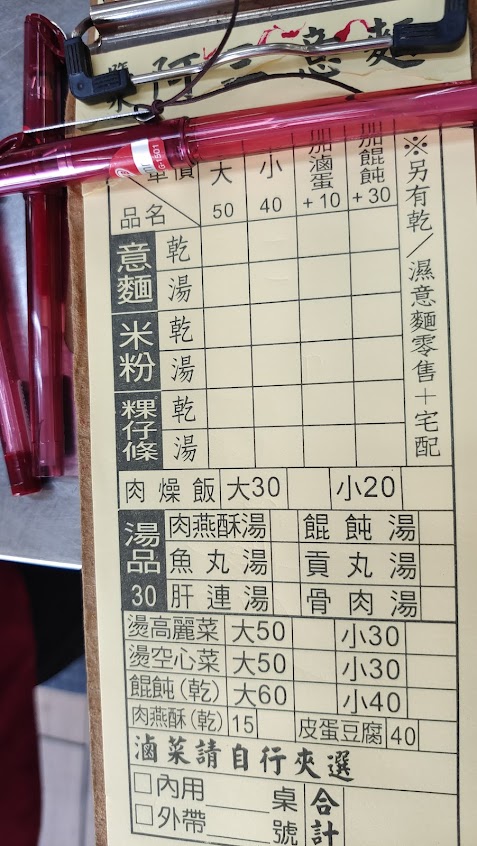 阿三意麵
G-1501
單價 大 小 加滷蛋 加餛飩
品名 50 40 +10 +30
意麵 乾
湯
米粉 乾
湯
粿仔條 乾
湯
※另有乾/濕意麵零售+宅配
肉燥飯 大30 小20
湯品 30
肉燕酥湯 餛飩湯
魚丸湯 貢丸湯
肝連湯 骨肉湯
燙高麗菜 大50 小30
燙空心菜 大50 小30
餛飩(乾) 大60 小40
肉燕酥(乾) 15 皮蛋豆腐 40
滷菜請自行夾選
□內用____桌
□外帶____號
合計